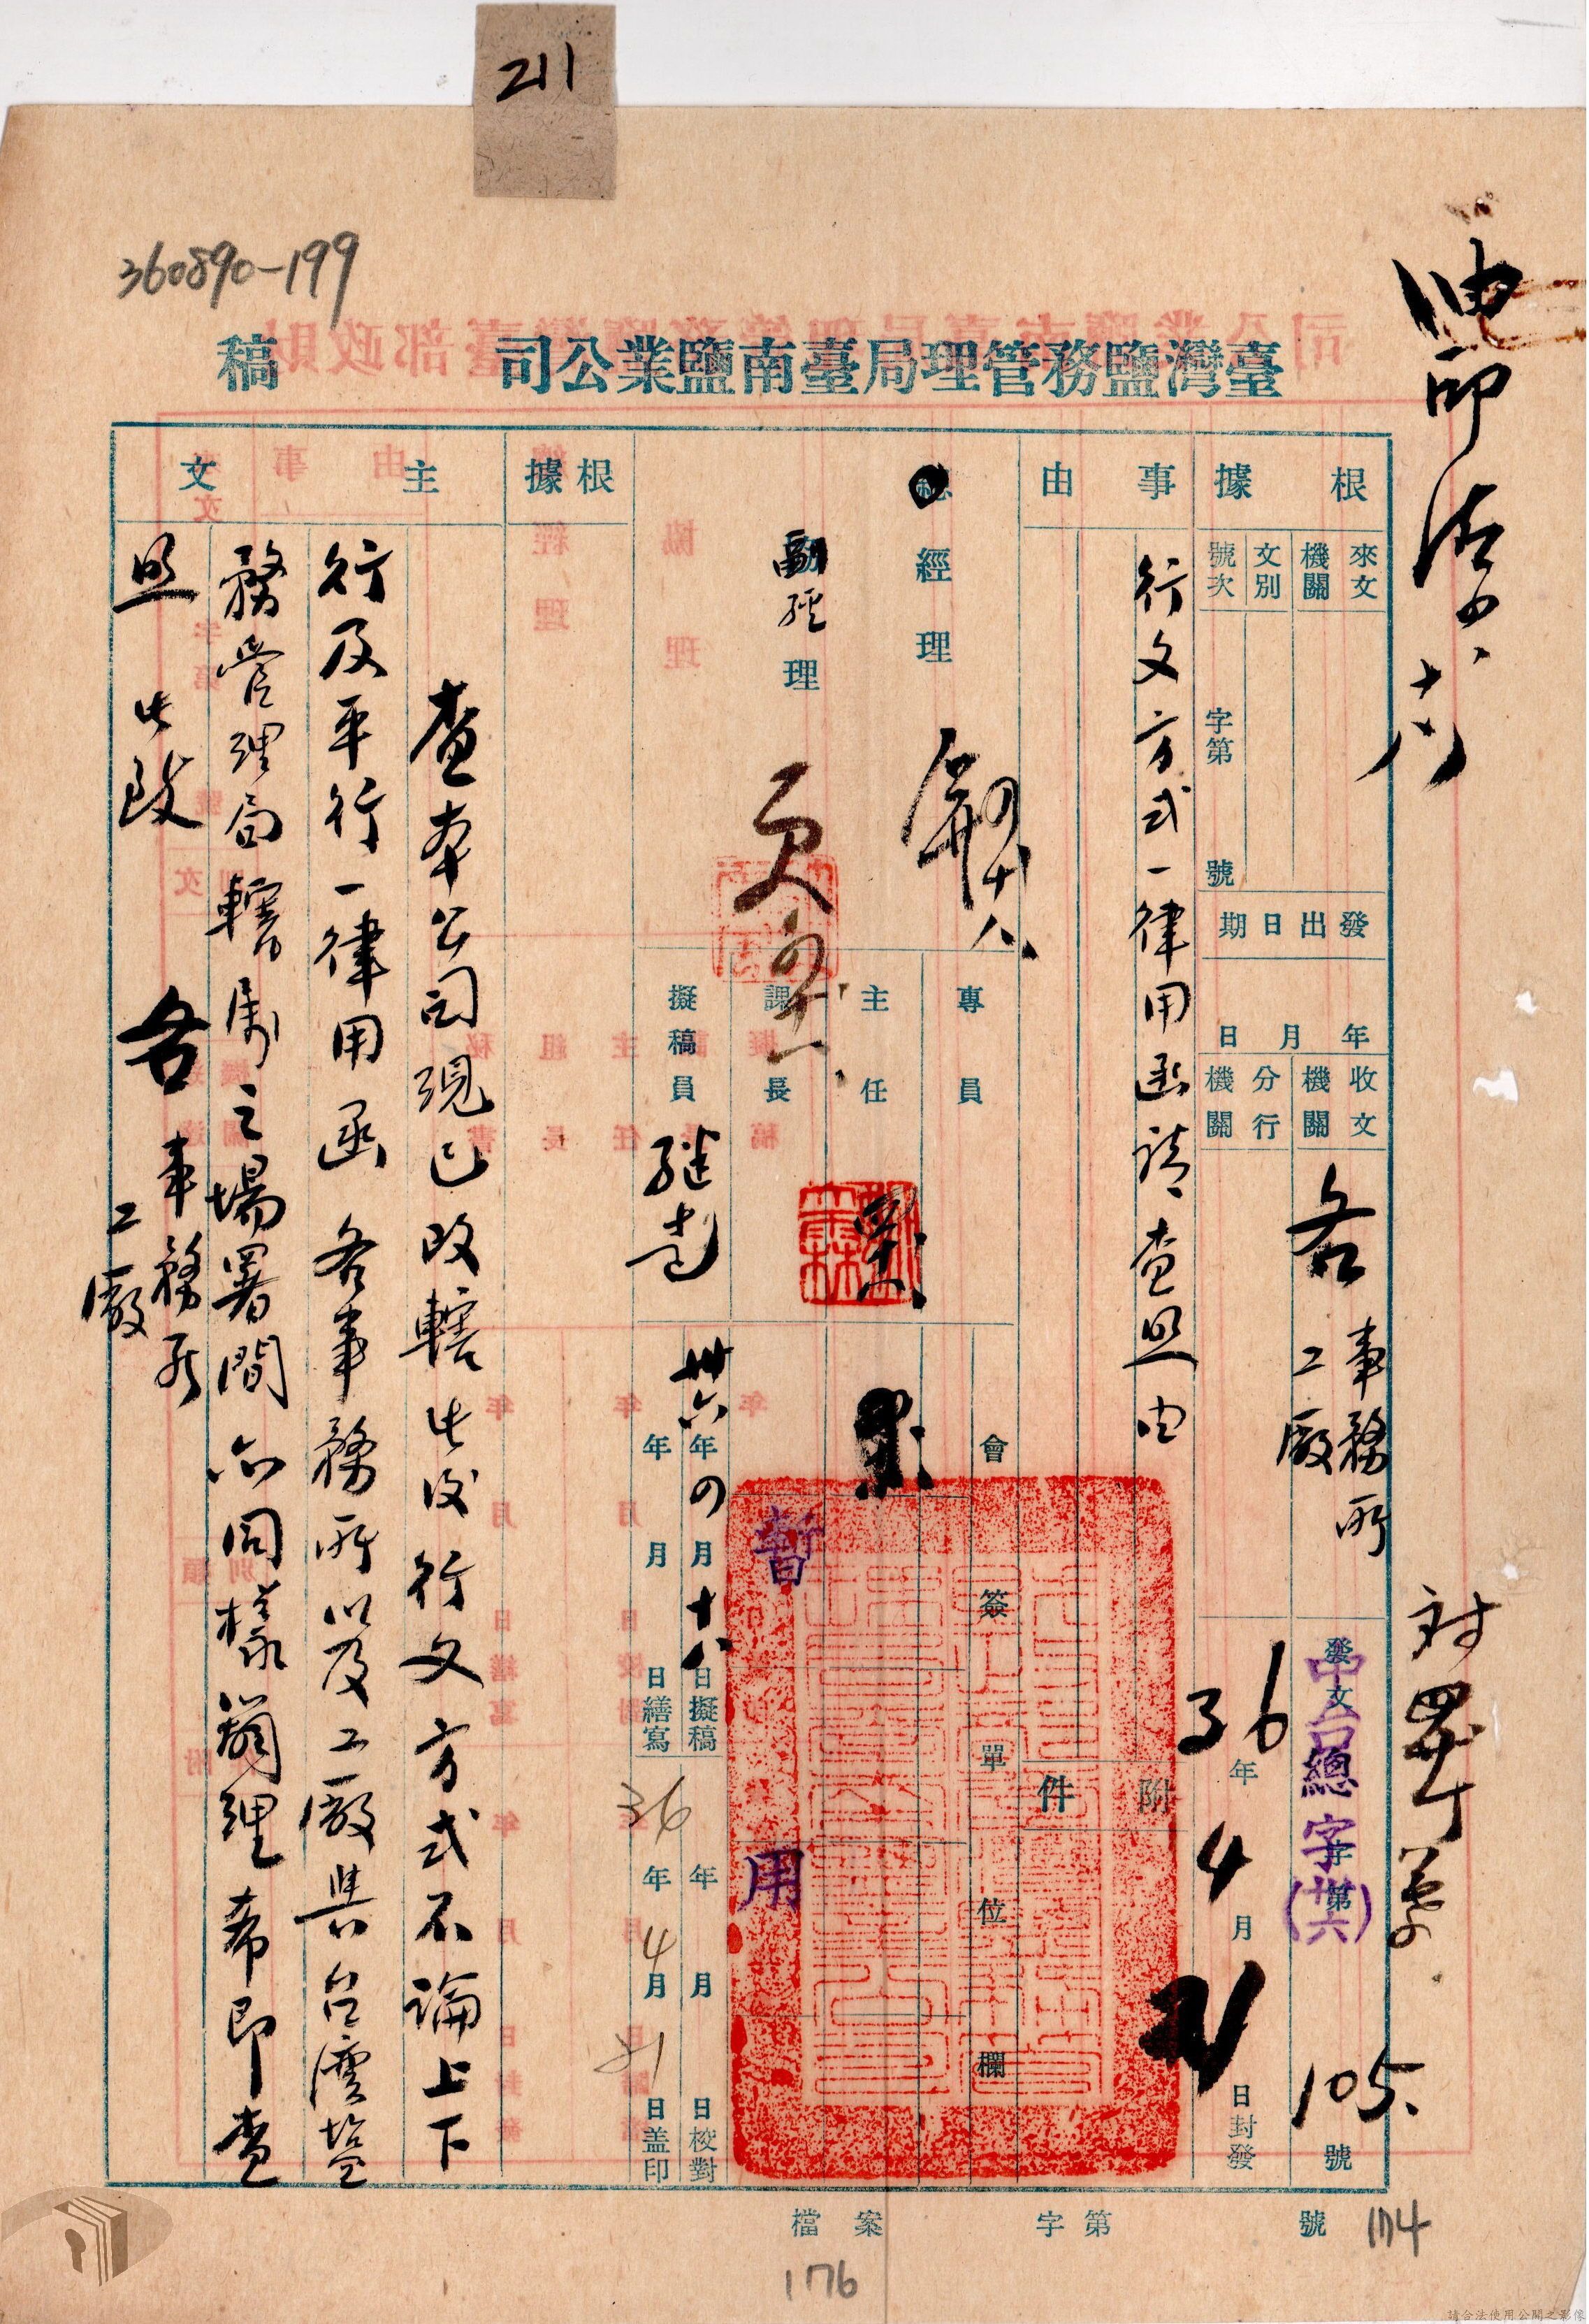 211
360890-199
臺灣鹽務管理局臺南鹽業公司
稿
油印
根據
來文機關
文別
號次
字第
號
發出日期
年
月
日
收文機關
各事務所
工廠
分行機關
發文
中台總字
字第
(卅六)
105.
號
36年4月21日封發
事由
行文方式一律用函請查照由
附件
總經理
副經理
專員
主任
課長
擬稿員
會簽單位欄
暫用
卅六年四月十八日擬稿
年
月
日繕寫
年
月
日校對
36年4月21日盖印
根據
主文
查本公司現已改轄此後行文方式不論上下
行及平行一律用函各事務所以及工廠與台灣塩
務管理局轄屬之場署間亦同樣辦理希即查
照此致
各事務所
工廠
檔案
字第
號
174
176
請合法使用公開之影像